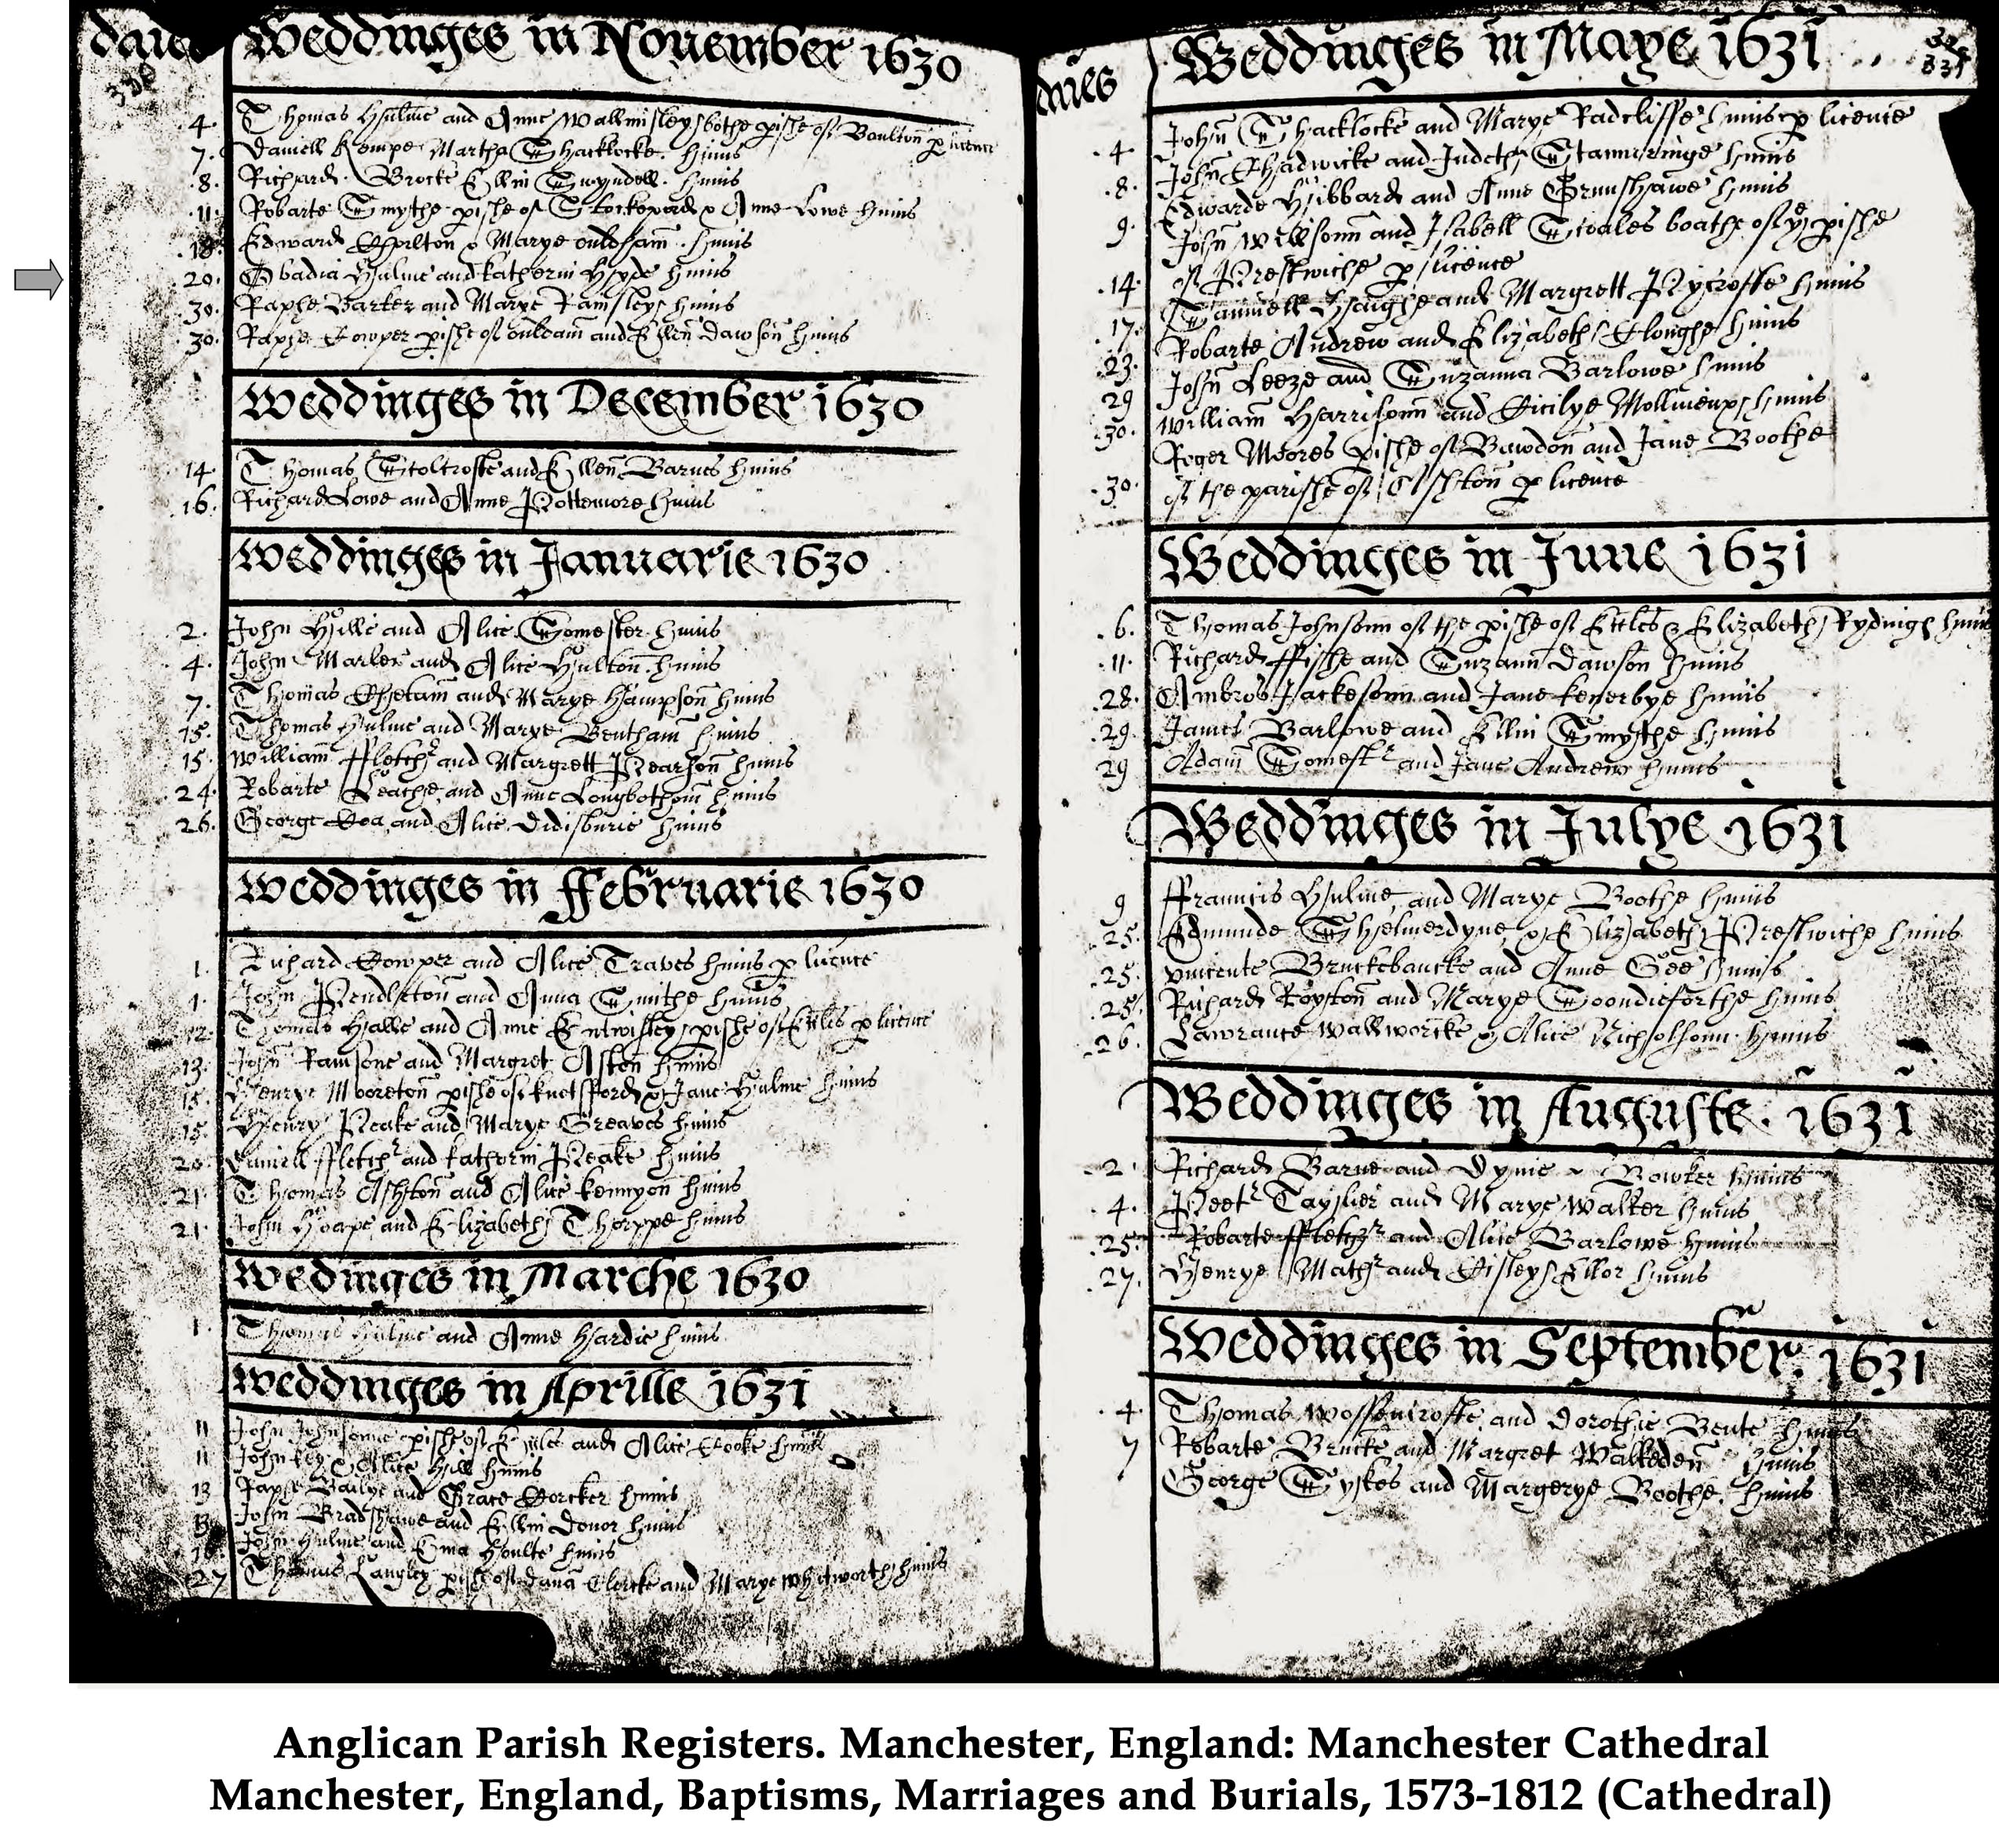 daies
Weddinges in November 1630
4. Thomas Hulme and Anne Wallmisley bothe pishe of Boulton p licence
7. Daniell Kempe Martha Shacklocke. huius
8. Richard Brocke Ellin Swyndell. huius
11. Robarte Smythe pishe of Stockeport & Anne Lowe huius
18. Edward Chorlton & Marye ouldham. huius
20. Obadia Hulme and Katherin Hyde huius
30. Raphe Barker and Marye Ramsley huius
30. Raphe Cowper pishe of ouldam and Ellen Dawson huius
Weddinges in December 1630
14. Thomas and Ellen Barnes huius
16. Richard Lowe and Anne huius
Weddinges in Januarie 1630
2. John Hille and Alice Somester huius
4. John Marler and Alice Hulton huius
7. Thomas Chetam and Marye Hampson huius
15. Thomas Hulme and Marye Bentham huius
15. William ffletchr and Margrett Pearson huius
24. Robarte Leache and Anne Longbothom huius
26. George Coa and Alice Didisburie huius
Weddinges in ffebruarie 1630
1. Richard Cowper and Alice Traves huius p licence
1. John Pendleton and Anna Smithe huius
12. Thomas Halle and Anne Entwisley pishe of Eccles p licence
13. John Ramsone and Margret Asten huius
15. Henrye Mooreton pishe of knutsford & Jane Hulme huius
15. Henry Peake and Marye Greaves huius
20. Daniell ffletchr and katherin Peake huius
21. Thomas Ashton and Alice kennyon huius
21. John Hoape and Elizabeth Thorppe huius
Wedinges in Marche 1630
1. Thomas Hulme and Anne Hardie huius
Weddinges in Aprille 1631
11 John Johnsonne pishe of Eccles and Alice Cooke huius
11 John key & Alice Hill huius
13 Raphe Bailye and Grace Corcker huius
13 John Bradshawe and Ellin Donor huius
John Hulme and Ema Houlte huius
27 Thomas Langley pishe of and Marye Whitworth huius
daies
Weddinges in Maye 1631
John Shacklocke and Marye Radcliffe huius p licence
4. John Chadwicke and Judeth Stannringe huius
8. Edwarde Hibbard and Anne Grunshawe huius
9. John Willsonn and Isabell Scoales boathe of ye pishe
of Prestwiche p licence
14. Samuell Haughe and Margrett Rycrofte huius
17. Robarte Andrew and Elizabeth Cloughe huius
23. John Leeze and Suzanna Barlowe huius
29 William Harrisonn and Cicilye Mollineux huius
30. Roger Moores pishe of Bawdon and Jane Boothe
30. of the parishe of Ashton p licence
Weddinges in June 1631
6. Thomas Johnsonn of the pishe of Eccles & Elizabeth Rydinge huius
11. Richard ffishe and Suzann Dawson huius
28. Ambros Jackesonn and Jane kenerbye huius
29. James Barlowe and Ellin Smythe huius
29 Adam Somestr and Jane Andrew huius
Weddinges in Julye 1631
9 ffrauncis Hulme and Marye Boothe huius
25. Edmunde Shelmerdyne & Elizabeth Prestwiche huius
25. vincente Bruckebancke and Anne Gee huius
25. Richard Royston and Marye Soondieforthe huius
26. Lawrance Wallworcke & Alice Nicholsonn huius
Weddinges in Auguste. 1631
2. Richard Barne and Dynie Bowker huius
4. Peetr Taylier and Marye Walker huius
25. Robarte ffletchr and Alice Barlowe huius
27. Henrye Mathr and Cisley Ellor huius
Weddinges in September. 1631
4. Thomas Wossencrofte and Dorothie Bente huius
7 Robarte Brucke and Margret Walkeden huius
George Sykes and Margerye Boothe. huius
Anglican Parish Registers. Manchester, England: Manchester Cathedral
Manchester, England, Baptisms, Marriages and Burials, 1573-1812 (Cathedral)